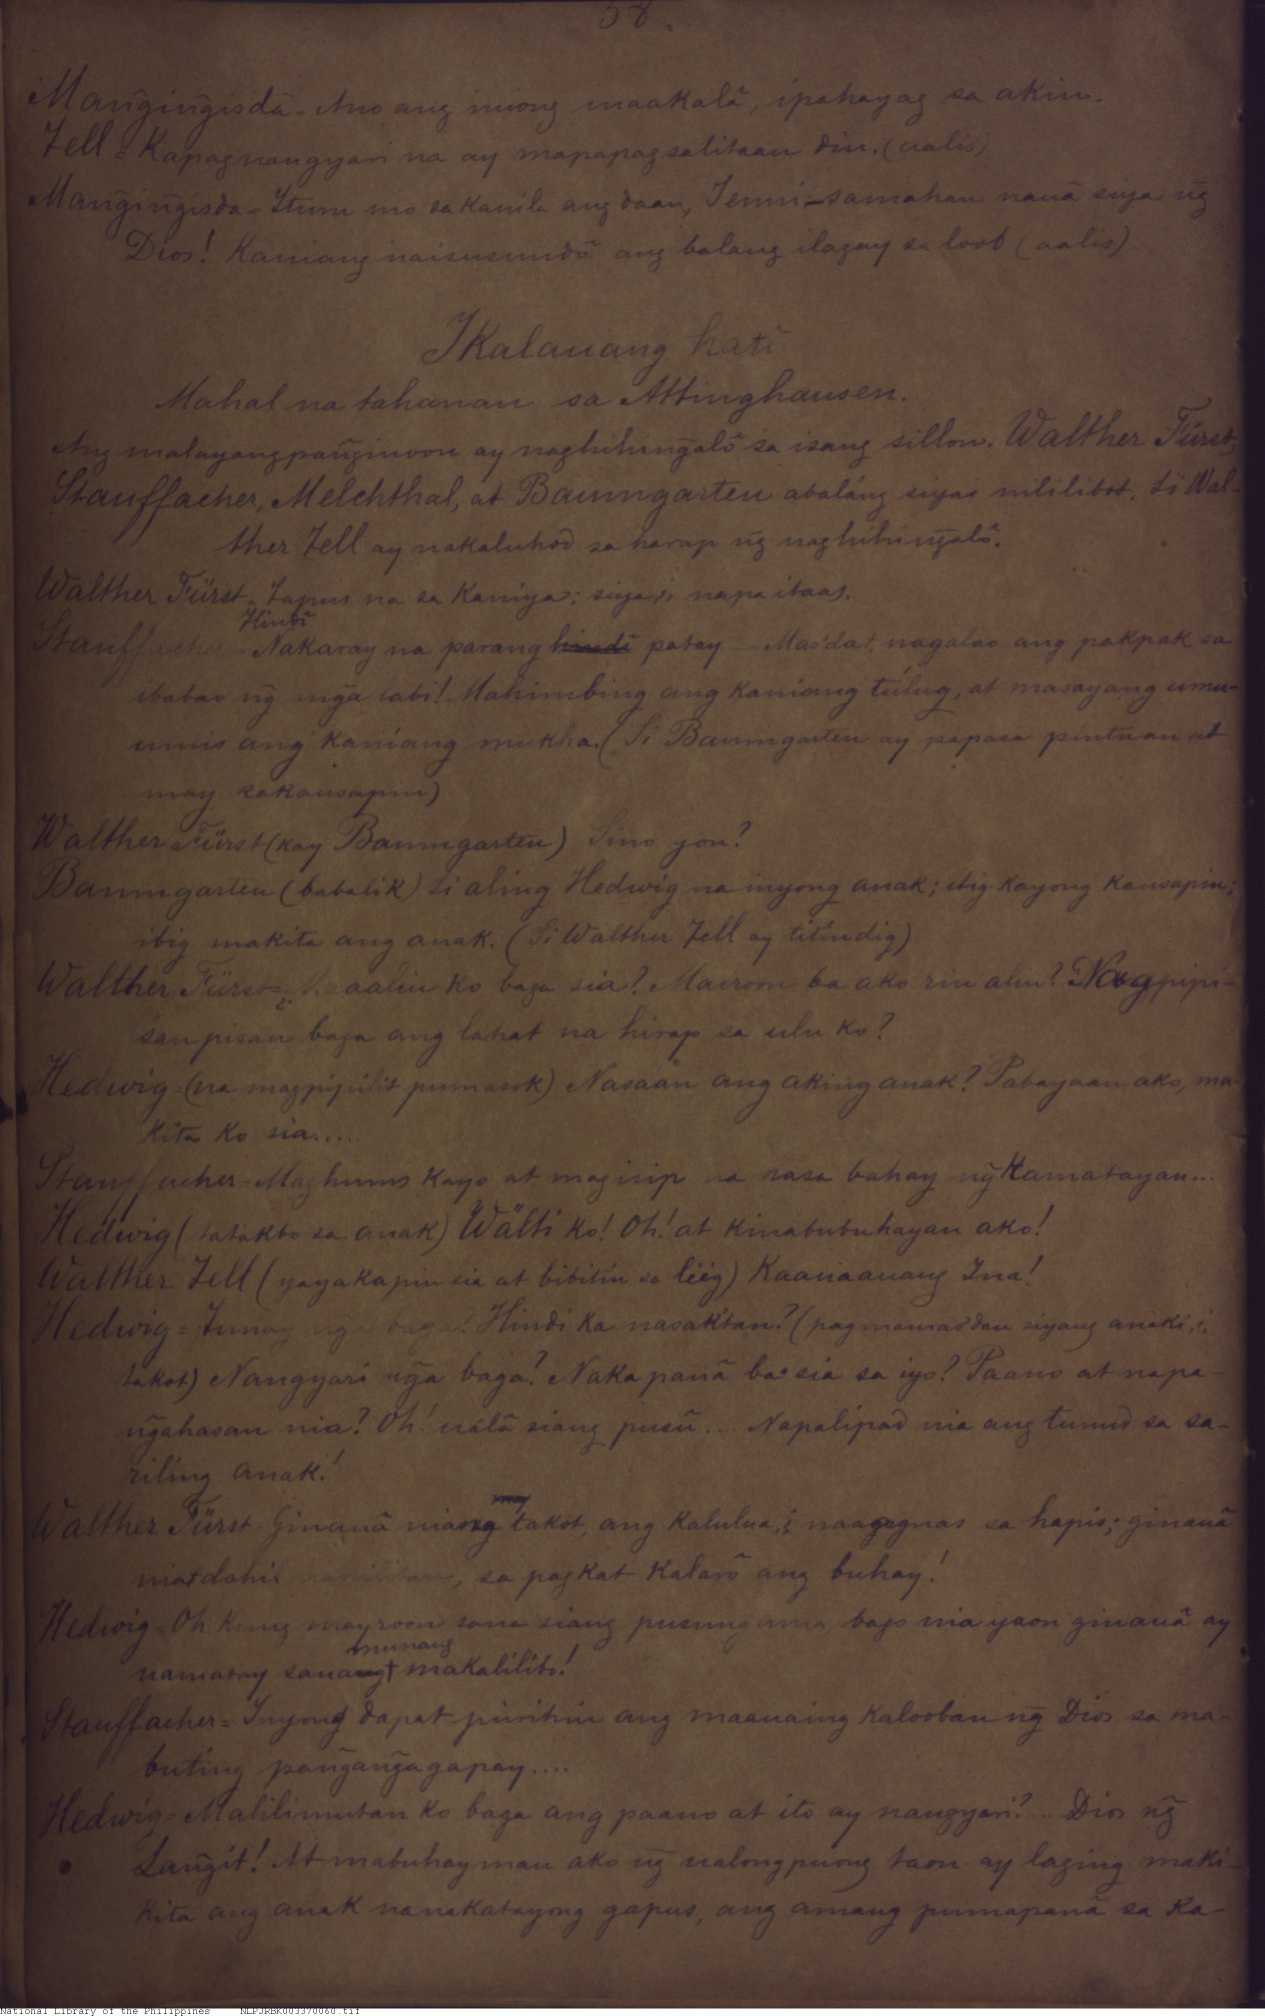 58.
Mañgiñgisdâ - Ano ang iniong maakalâ, ipahayag sa akin.
Tell = Kapagnangyari na ay mapapagsalitaan din. (aalis)
Mañgiñgisda - Ituru mo sa kanila ang daan, Jenni - samahan nauâ siya ñg
Dios! Kaniang naisusundû ang balang ilagay sa loob (aalis)
Ikalauang hati
Mahal na tahanan sa Attinghausen.
Ang malayang pañginoon ay naghihiñgalô sa isang sillon. Walther Fürst,
Stauffacher, Melchthal, at Baumgarten abaláng siyas nililibot. Si Wal-
ther Tell ay nakaluhod sa harap ñg naghihiñgalô.
Walther Fürst = Tapus na sa kaniya: siya,i, napa itaas.
Hindî
Stauffacher - Nakaray na parang hindî patay - Masdat, nagalao ang pakpak sa
ibabao ñg mga labi! Mahimbing ang kaniang túlug, at masayang umu-
umis ang kaniang mukha. (Si Baumgarten ay papasa pintuan at
may kakausapin)
Walther Fürst (kay Baumgarten) Sino yon?
Baumgarten (babalik) Si aling Hedwig na inyong anak; ibig kayong kausapin;
ibig makita ang anak. (Si Walther Tell ay titindig)
Walther Fürst = aaliu ko baga sia? Mairoon ba ako rin aliu? Nagpipi-
san pisan baga ang lahat na hirap sa ulu ko?
Hedwig = (na magpipilit pumasuk) Nasaán ang aking anak? Pabayaan ako, ma-
kita ko sia.....
Stauffacher = Maghunus kayo at magisip na nasa bahay ñg Kamatayan...
Hedwig (tatakbo sa anak) Wälti ko! Oh! at kinabubuhayan ako!
Walther Tell (yayakapin sia at bibitin sa liég) Kaauaauang Ina!
Hedwig = Tunay ñga baga! Hindi ka nasaktan? (pagmamasdan siyang anaki,i,
takot) Nangyari ñga baga? Nakapanâ ba sia sa iyo? Paano at napa-
ñgahasan nia? Oh! ualâ siang pusû... Napalipad nia ang tunud sa sa-
riling anak!
Walther Fürst Ginauâ niang takot, ang kalulua,i, naagnas sa hapis; ginauâ
niat dahil, sa pagkat kalarô ang buhay!
Hedwig = Oh kung mayroon sana siang pusung ama, bago nia yaon ginauâ ay
munang
namatay sanang† makalilibo!
Stauffacher = Inyong dapat purihin ang maauaing kalooban ñg Dios sa ma-
buting pañgañgagapay....
Hedwig = Malilimutan ko baga ang paano at ito ay nangyari? .. Dios ñg
Lañgit! At mabuhay man ako ñg ualongpuong taon ay laging maki-
kita ang anak nanakatayong gapus, ang amang pumapanâ sa ka-
National Library of the Philippines NLPJRBK003370060.tif